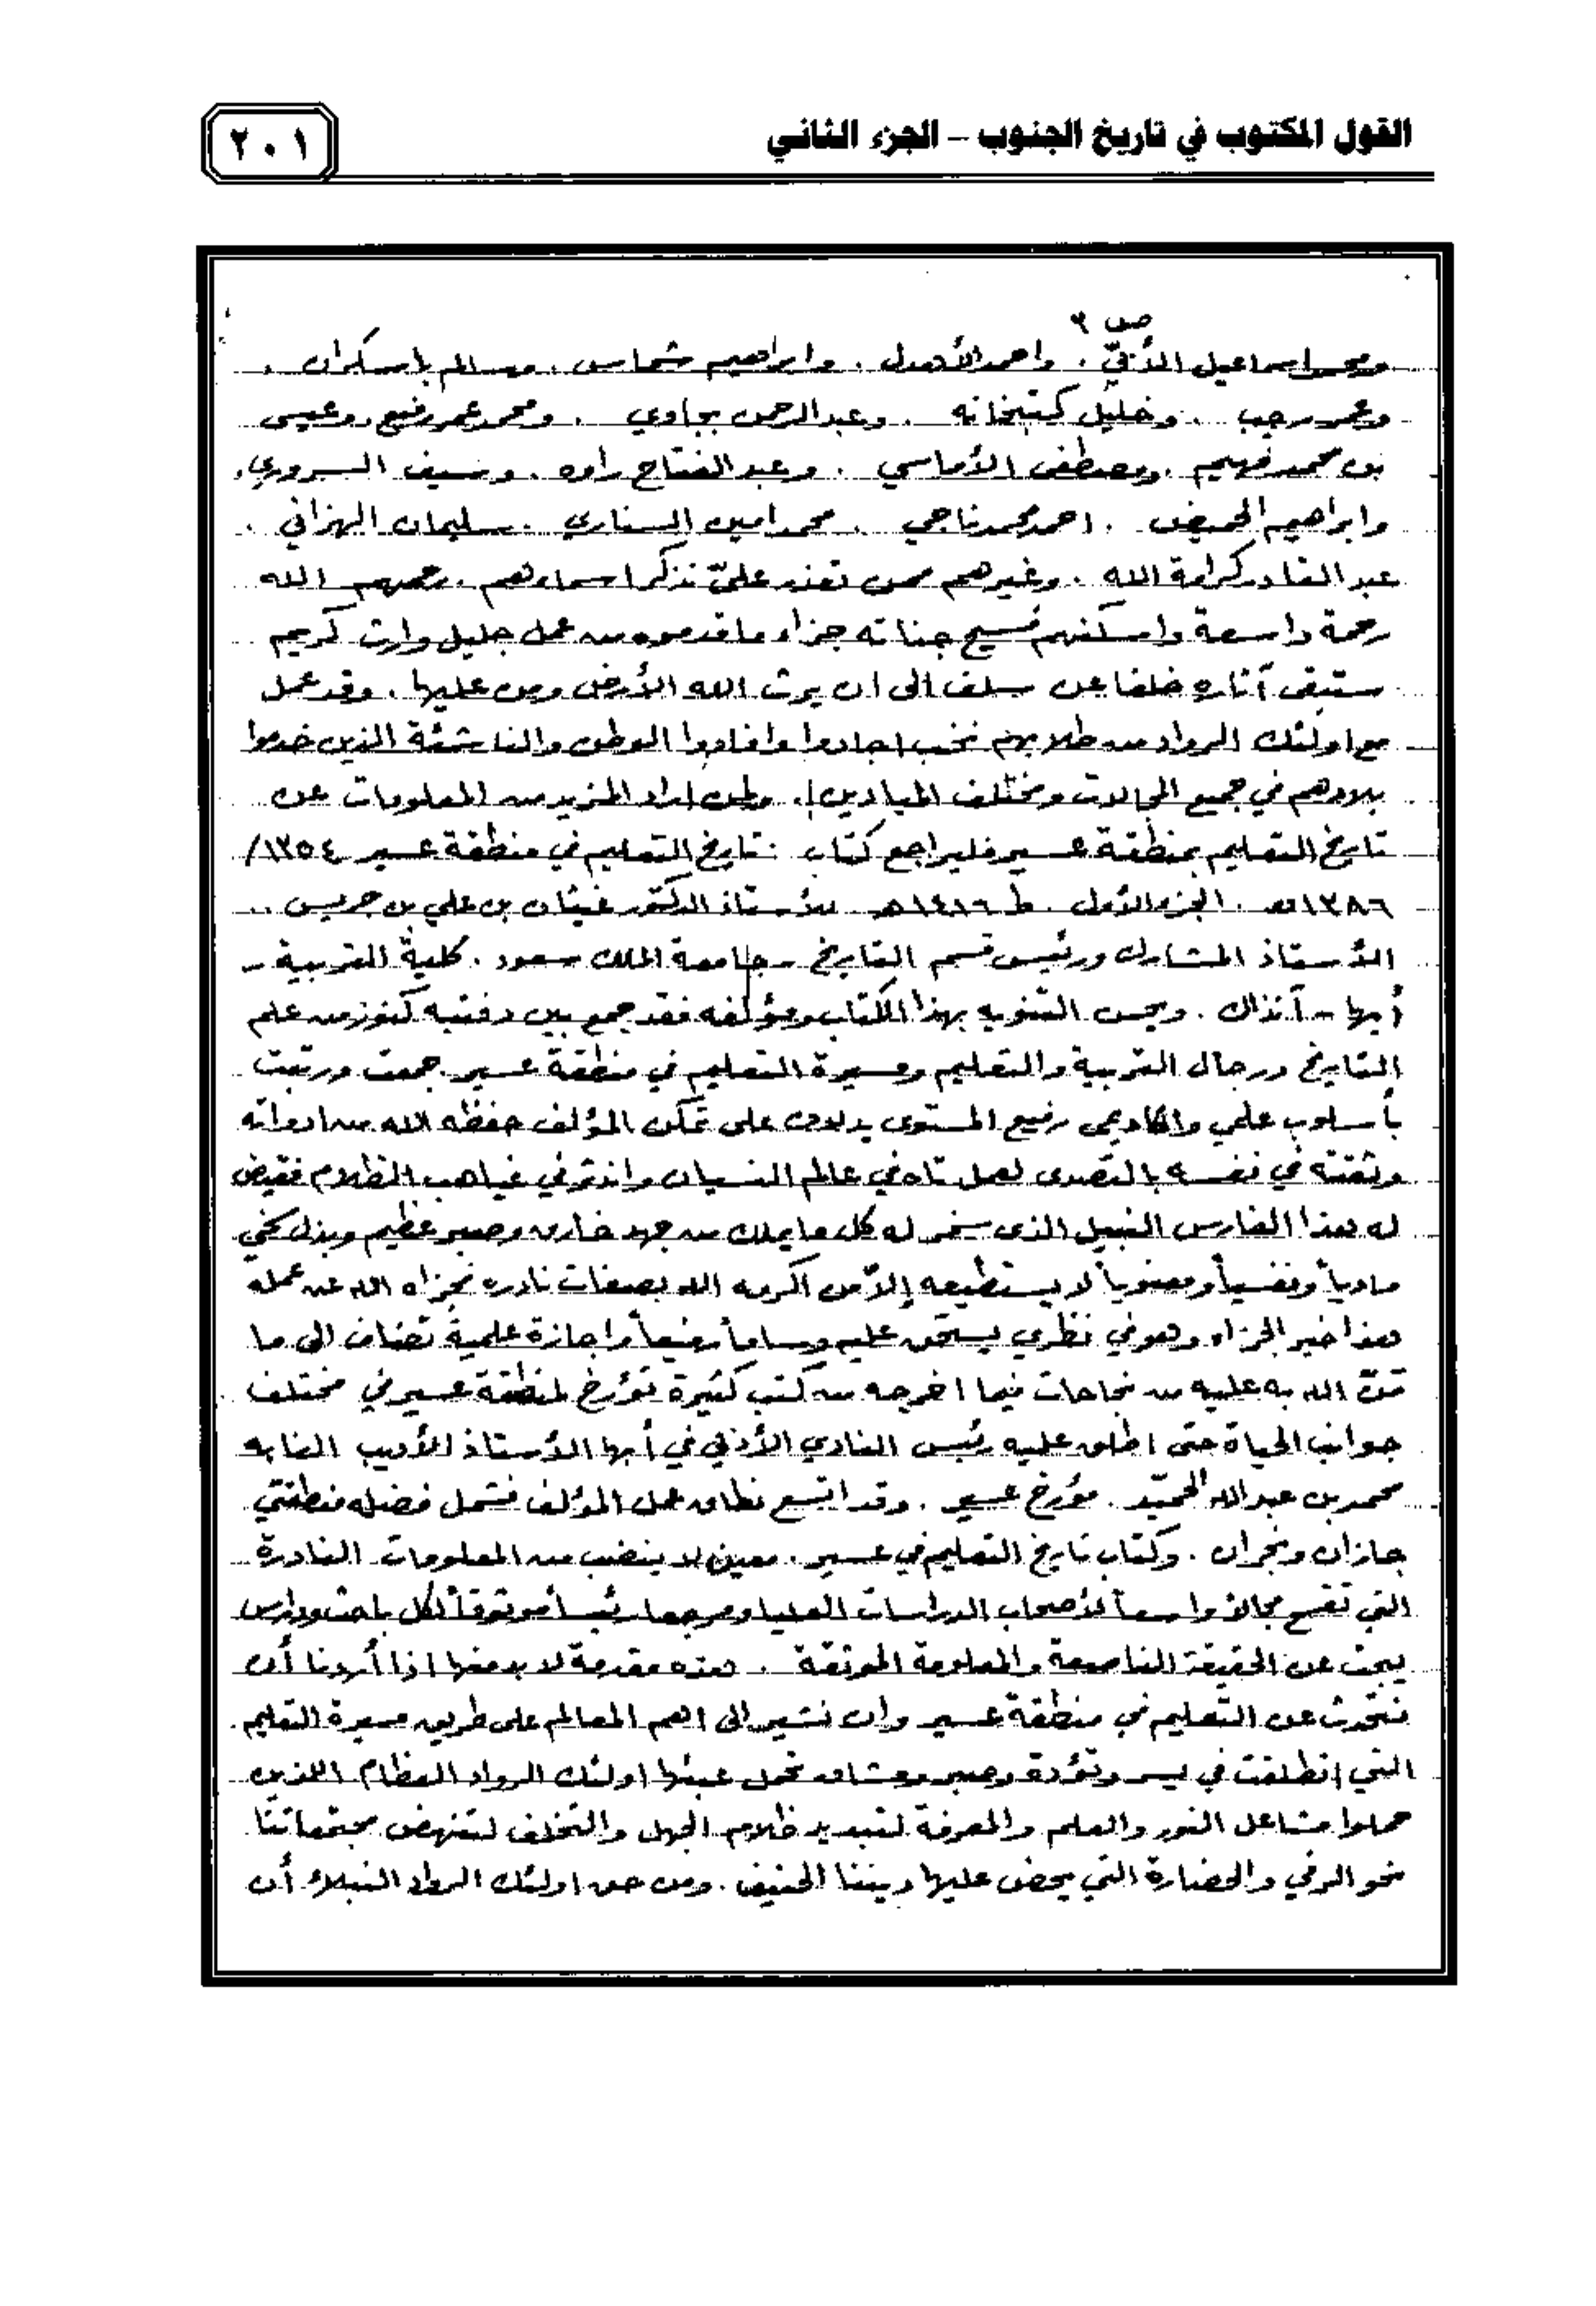 القول المكتوب في تاريخ الجنوب – الجزء الثاني
٢٠١
ص ٢
واحمد الأهدل . وابراهيم شماس . وسالم باسكران .
وعمر رجب . وخليل كتبخانه . وعبدالرحمن بجاوي . ومحمد عمر رفيع . وعيسى
بن محمد فهيم . ومصطفى الأماسي . وعبد الفتاح راوه . وسيف السروري .
وابراهيم الحميضي . احمد محمد ناجي . محمد امين السناري . سليمان الهزاني .
عبد القادر كرامة الله . وغيرهم ممن تعذر عليّ تذكر اسماءهم . رحمهم الله
رحمة واسعة واسكنهم فسيح جناته جزاء ما قدموه من عمل جليل وارث كريم
ستبقى آثاره خلفا عن سلف الى ان يرث الله الأرض ومن عليها . وقد عمل
مع اولئك الرواد من طلابهم نخب اجادوا وافادوا الوطن والناشئة الذين خدموا
بلادهم في جميع المجالات ومختلف الميادين . ولمن اراد المزيد من المعلومات عن
تاريخ التعليم بمنطقة عسير فليراجع كتاب : تاريخ التعليم في منطقة عسير ١٣٥٤/
١٣٨٦هـ . الجزء الأول . ط ١٤١٦هـ للأستاذ الدكتور غيثان بن علي بن جريس ..
الأستاذ المشارك ورئيس قسم التاريخ - جامعة الملك سعود . كلية التربية -
أبها - آنذاك . ويحسن التنويه بهذا الكتاب ومؤلفه فقد جمع بين دفتيه كنوز من علم
التاريخ ورجال التربية والتعليم ومسيرة التعليم في منطقة عسير جمعت ورتبت
بأسلوب علمي واكاديمي رفيع المستوى يدلان على تمكن المؤلف حفظه الله من ادواته
وثقته في نفسه بالتصدى لعمل تاه في عالم النسيان واندثر في غياهب الظلام فقيض
له هذا الفارس النبيل الذى سخر له كل ما يملك من جهد خارق وصبر عظيم وبذل سخي
مادياً ونفسياً ومعنوياً لا يستطيعه إلاّ من اكرمه الله بصفات نادره فجزاه الله عن عمله
هذا خير الجزاء وهو في نظري يستحق عليه وساماً رفيعاً واجازة علمية تضاف الى ما
منّ الله به عليه من نجاحات فيما اخرجه من كتب كثيرة تؤرخ لمنطقة عسير في مختلف
جوانب الحياة حتى اطلق عليه رئيس النادي الأدبي في أبها الأستاذ الأديب النابه
محمد بن عبدالله الحميّد . مؤرخ عسير . وقد اتسع نطاق عمل المؤلف فشمل فضله منطقتي
جازان ونجران . وكتاب تاريخ التعليم في عسير . معين لا ينضب من المعلومات النادرة
التي تفسح مجالاً واسعاً لأصحاب الدراسات العليا ومرجعا رئيساً موثوقاً لكل باحث ودارس
يبحث عن الحقيقة الناصعة والمعلومة الموثقة . هذه مقدمة لا بد منها اذا أردنا أن
نتحدث عن التعليم في منطقة عسير وان نشير الى اهم المعالم على طريق مسيرة التعليم
التي انطلقت في يسر وتؤدة وصبر ومشاق تحمل عبئها اولئك الرواد العظام الذين
حملوا مشاعل النور والعلم والمعرفة لتبديد ظلام الجهل والتخلف لتنهض مجتمعاتنا
نحو الرقي والحضارة التي يحض عليها ديننا الحنيف . ومن حق اولئك الرواد النبلاء أن